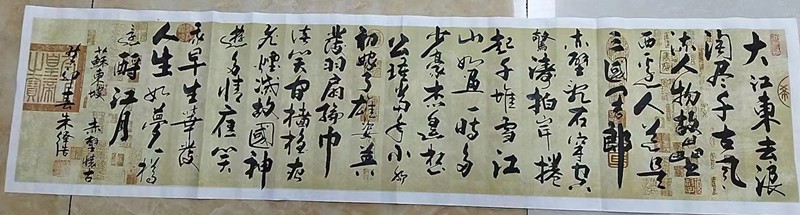 大江東去浪
淘尽千古风
流人物故壘
西邊人道是
三國周郎
赤壁亂石穿空
驚濤拍岸捲
起千堆雪江
山如画一時多
少豪杰遥想
公瑾當年小喬
初嫁了雄姿英
發羽扇綸巾
談笑間檣櫓灰
飛煙滅故國神
遊多情應笑
我早生華髮
人生如夢一樽
還酹江月
蘇東坡 赤壁懷古